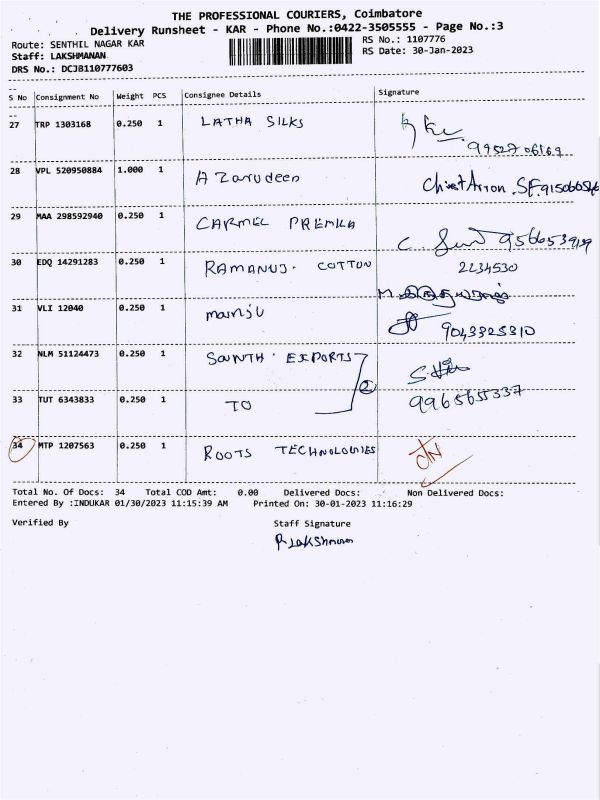 THE PROFESSIONAL COURIERS, Coimbatore
Delivery Runsheet - KAR - Phone No.:0422-3505555 - Page No.:3
Route: SENTHIL NAGAR KAR
RS No.: 1107776
Staff: LAKSHMANAN
RS Date: 30-Jan-2023
DRS No.: DCJB110777603
S No Consignment No Weight PCS Consignee Details Signature
27 TRP 1303168 0.250 1 LATHA SILKS
99527 06169
28 VPL 520950884 1.000 1 A Zarudeen
29 MAA 298592940 0.250 1 CARMEL PREMILA
30 EDQ 14291283 0.250 1 RAMANUJ. COTTON 2234530
31 VLI 12040 0.250 1 manju 9043325310
32 NLM 51124473 0.250 1 SOUNTH. EXPORTS
2
33 TUT 6343833 0.250 1 TO 9965655337
34 MTP 1207563 0.250 1 ROOTS TECHNOLOGIES
Total No. Of Docs: 34 Total COD Amt: 0.00 Delivered Docs: Non Delivered Docs:
Entered By :INDUKAR 01/30/2023 11:15:39 AM Printed On: 30-01-2023 11:16:29
Verified By Staff Signature
R Lakshmanan